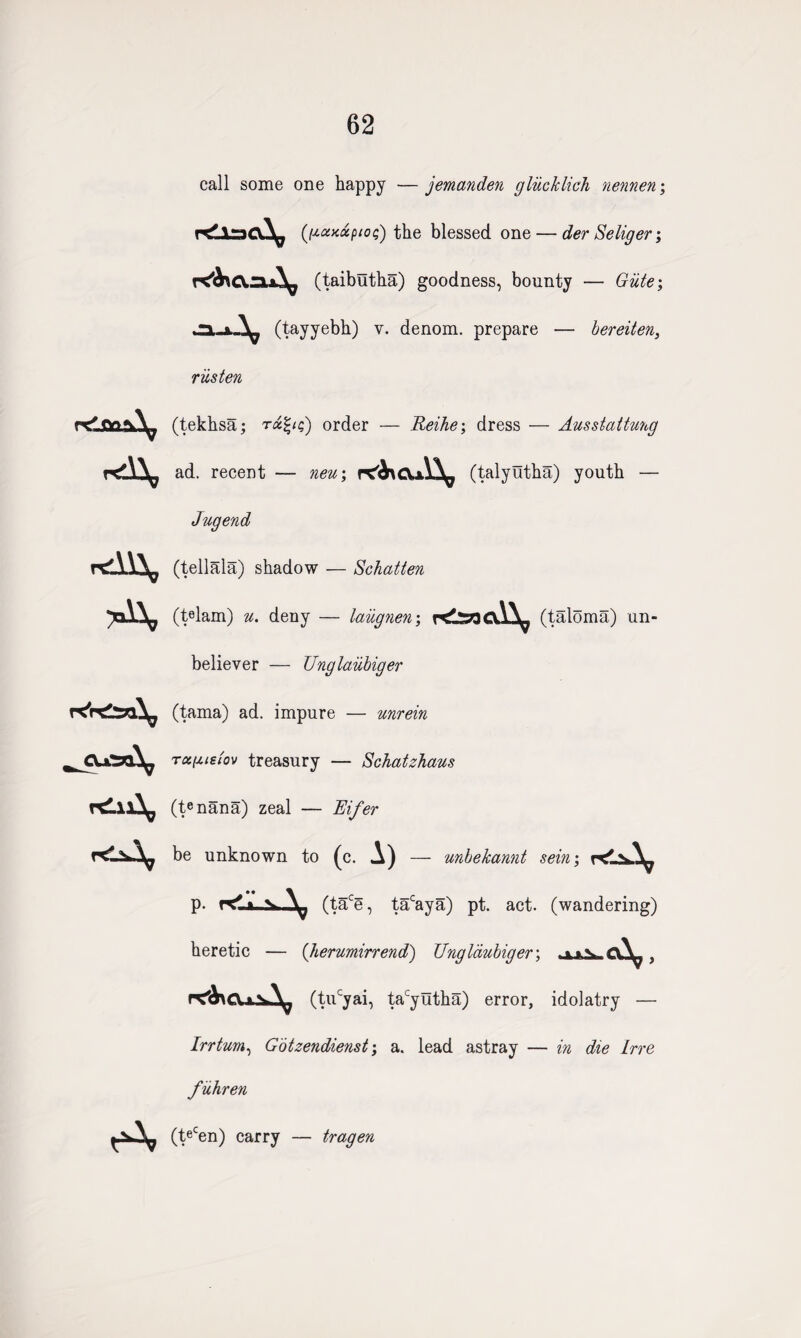 62
call some one happy — jemanden glücklich nennen;
ܛܘܒܢܐ (μακάριος) the blessed one — der Seliger;
ܛܝܒܘܬܐ (ṭaibūthā) goodness, bounty — Güte;
ܛܝܒ (ṭayyebh) v. denom. prepare — bereiten,
rüsten
ܛܟܣܐ (ṭekhsā; τάξις) order — Reihe; dress — Ausstattung
ܛܠܐ ad. recent — neu; ܛܠܝܘܬܐ (ṭalyūthā) youth —
Jugend
ܛܠܠܐ (ṭellālā) shadow — Schatten
ܛܠܡ (ṭᵉlam) u. deny — laügnen; ܛܠܘܡܐ (ṭālōmā) un-
believer — Unglaübiger
ܛܡܐܐ (ṭama) ad. impure — unrein
ܛܡܝܘܢ ταμιεῖον treasury — Schatzhaus
ܛܢܢܐ (ṭᵉnānā) zeal — Eifer
ܛܥܐ be unknown to (c. ܠ) — unbekannt sein; ܛܥܐ
p. ܛܥܝ̈ܐ (ṭāᶜē, ṭāᶜayā) pt. act. (wandering)
heretic — (herumirrend) Ungläubiger; ܛܘܥܝܝ,
ܛܥܝܘܬܐ (ṭuᶜyai, ṭaᶜyūthā) error, idolatry —
Irrtum, Götzendienst; a. lead astray — in die Irre
führen
ܛܥܢ (ṭᵉᶜen) carry — tragen